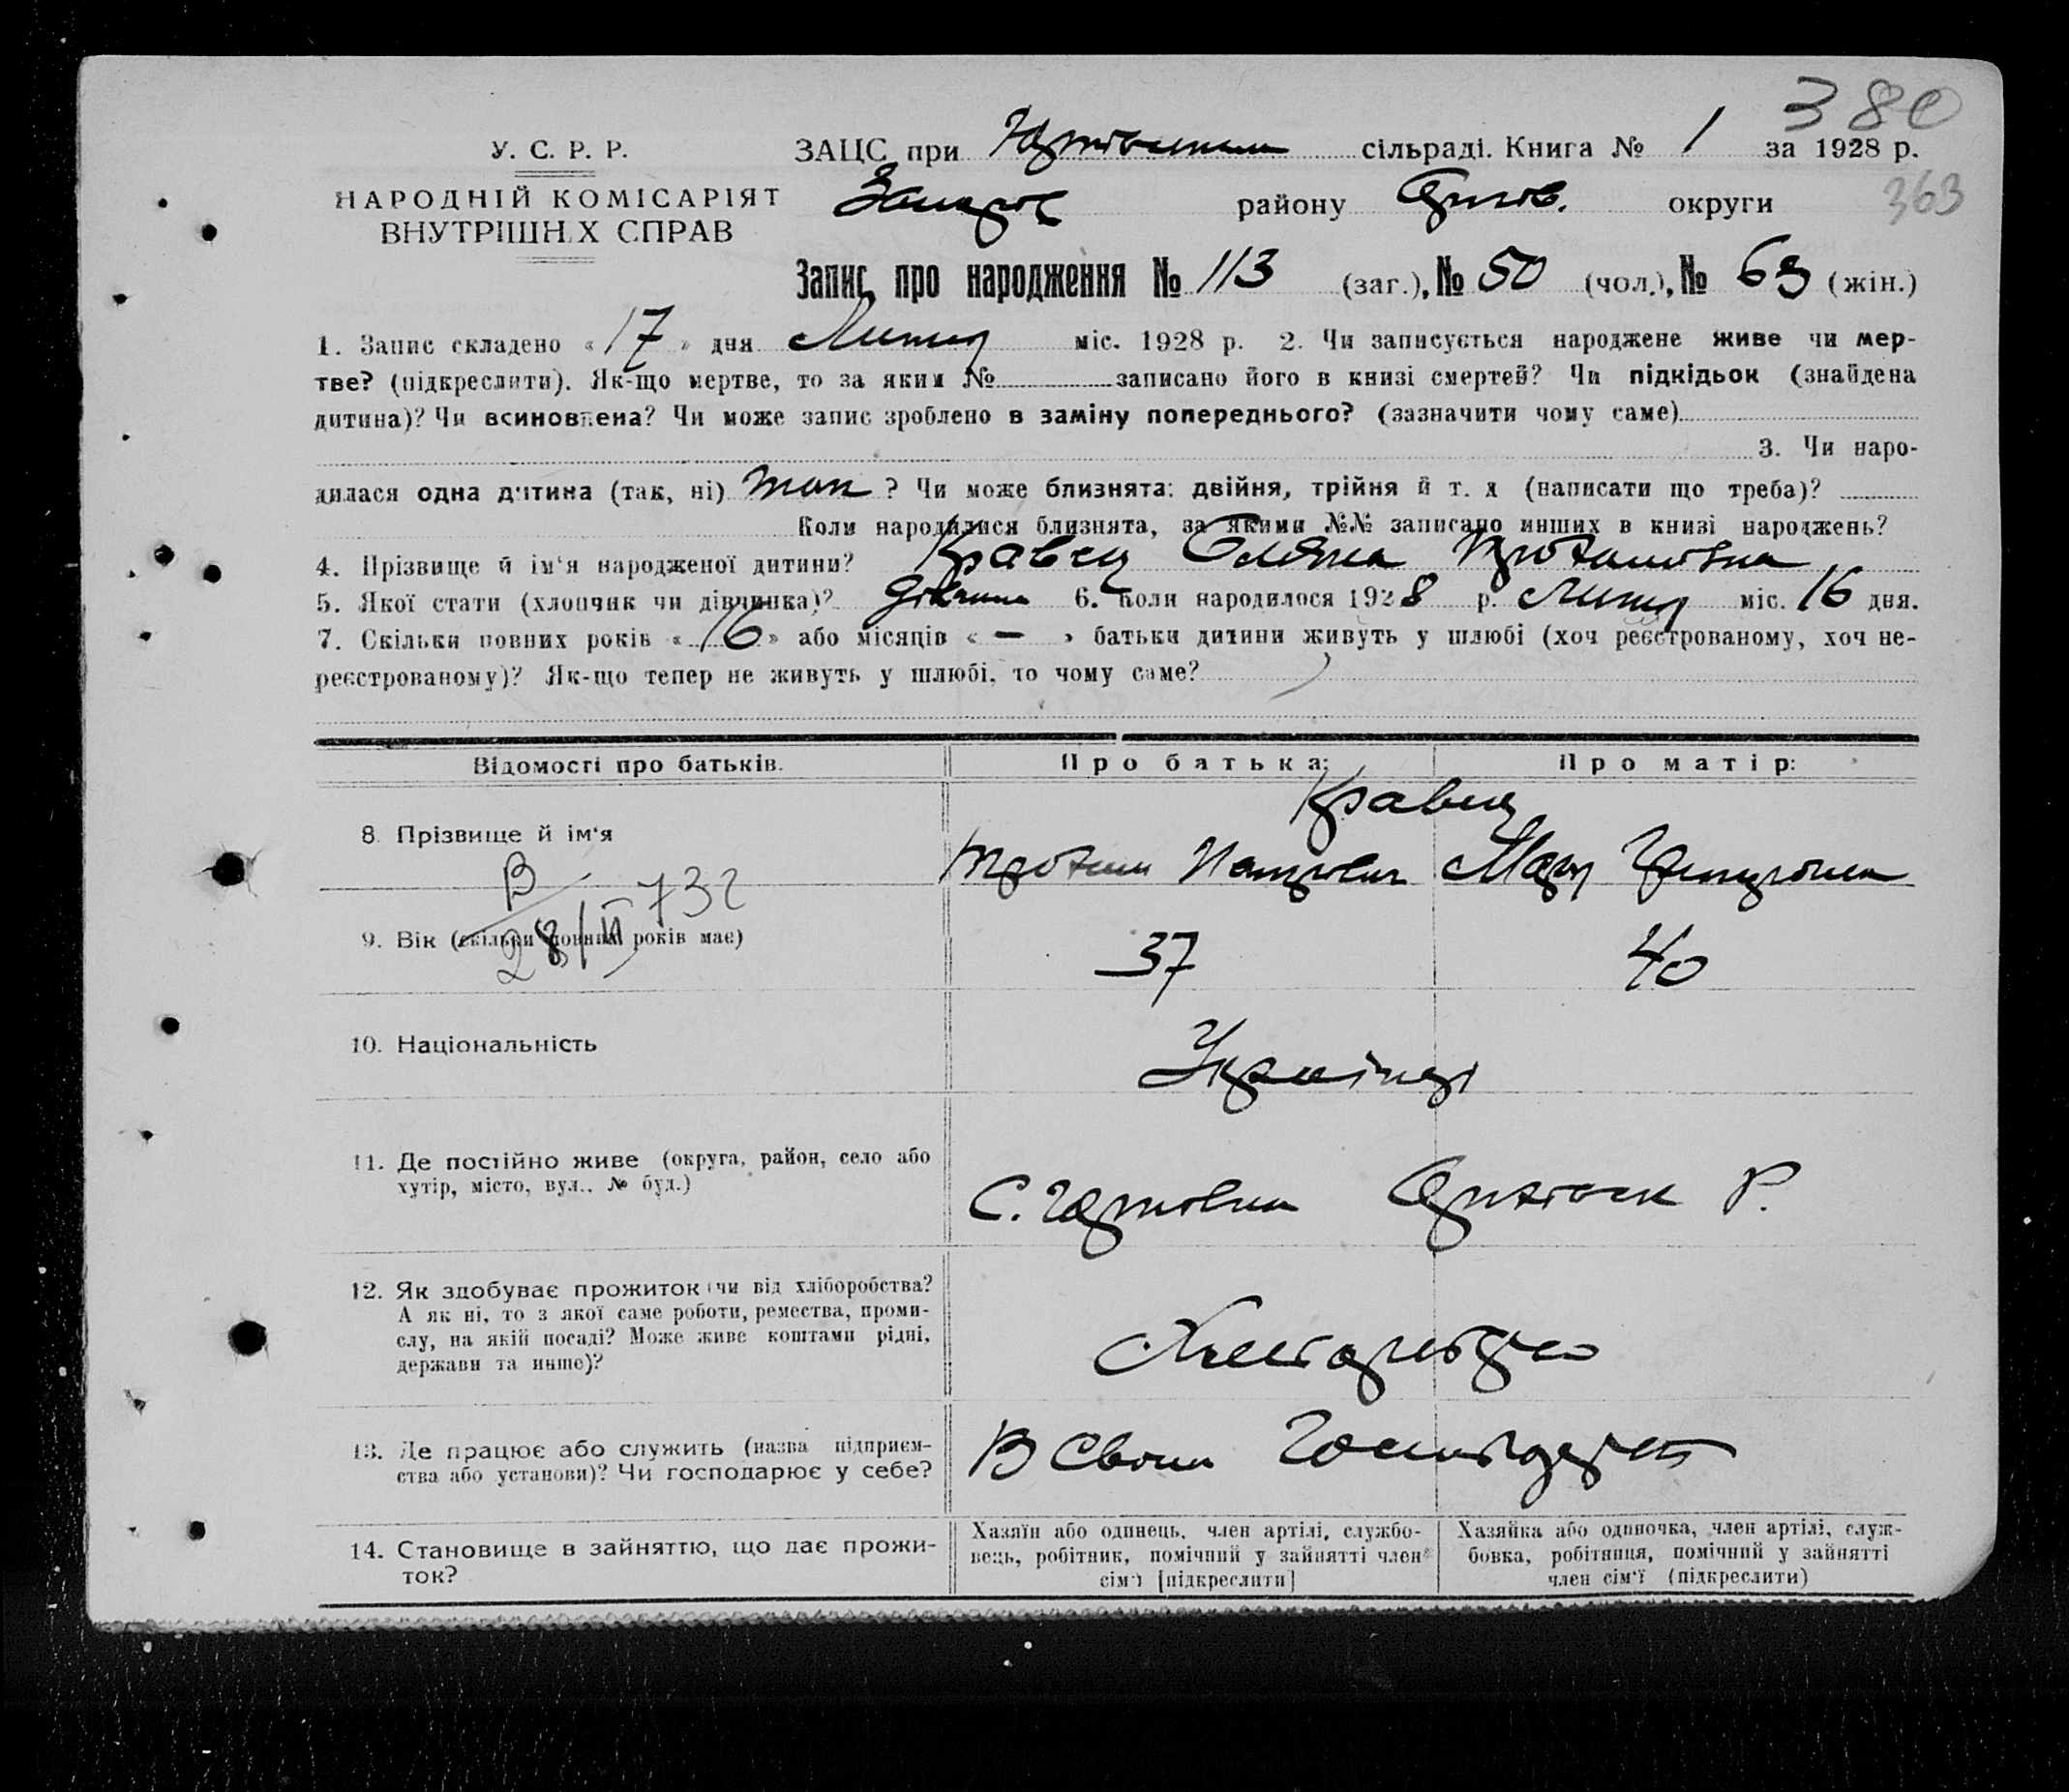 380
У. С. Р. Р.
ЗАЦС при сільраді. Книга № 1 за 1928 р.
НАРОДНІЙ КОМІСАРІЯТ
ВНУТРІШНІХ СПРАВ
району округи
363
Запис про народження № 113 (заг.), № 50 (чол.), № 63 (жін.)
1. Запис складено «17» дня Липня міс. 1928 р. 2. Чи записується народжене живе чи мер-
тве? (підкреслити). Як-що мертве, то за яким № записано його в книзі смертей? Чи підкідьок (знайдена
дитина)? Чи всиновлена? Чи може запис зроблено в заміну попереднього? (зазначити чому саме)
3. Чи наро-
дилася одна дитина (так, ні) так ? Чи може близнята: двійня, трійня й т. д (написати що треба)?
Коли народилися близнята, за якими №№ записано инших в книзі народжень?
4. Прізвище й ім'я народженої дитини? Кравец
5. Якої стати (хлопчик чи дівчинка)? дівчина 6. Коли народилося 1928 р. Липня міс. 16 дня.
7. Скільки повних років «16» або місяців « — » батьки дитини живуть у шлюбі (хоч реєстрованому, хоч не-
реєстрованому)? Як-що тепер не живуть у шлюбі, то чому саме?
Відомості про батьків. Про батька: Про матір:
Кравец
8. Прізвище й ім'я
В 732
28/II
9. Вік (скільки повних років має) 37 40
10. Національність Українці
11. Де постійно живе (округа, район, село або
хутір, місто, вул., № буд.)
С. Р.
12. Як здобуває прожиток (чи від хліборобства?
А як ні, то з якої саме роботи, ремества, проми-
слу, на якій посаді? Може живе коштами рідні,
держави та инше)?
13. Де працює або служить (назва підприєм-
ства або установи)? Чи господарює у себе?
В своем
14. Становище в зайняттю, що дає прожи-
ток?
Хазяїн або одинець, член артілі, службо-
вець, робітник, помічний у зайнятті член
сім'ї [підкреслити]
Хазяйка або одиночка, член артілі, служ-
бовка, робітниця, помічний у зайнятті
член сім'ї (підкреслити)